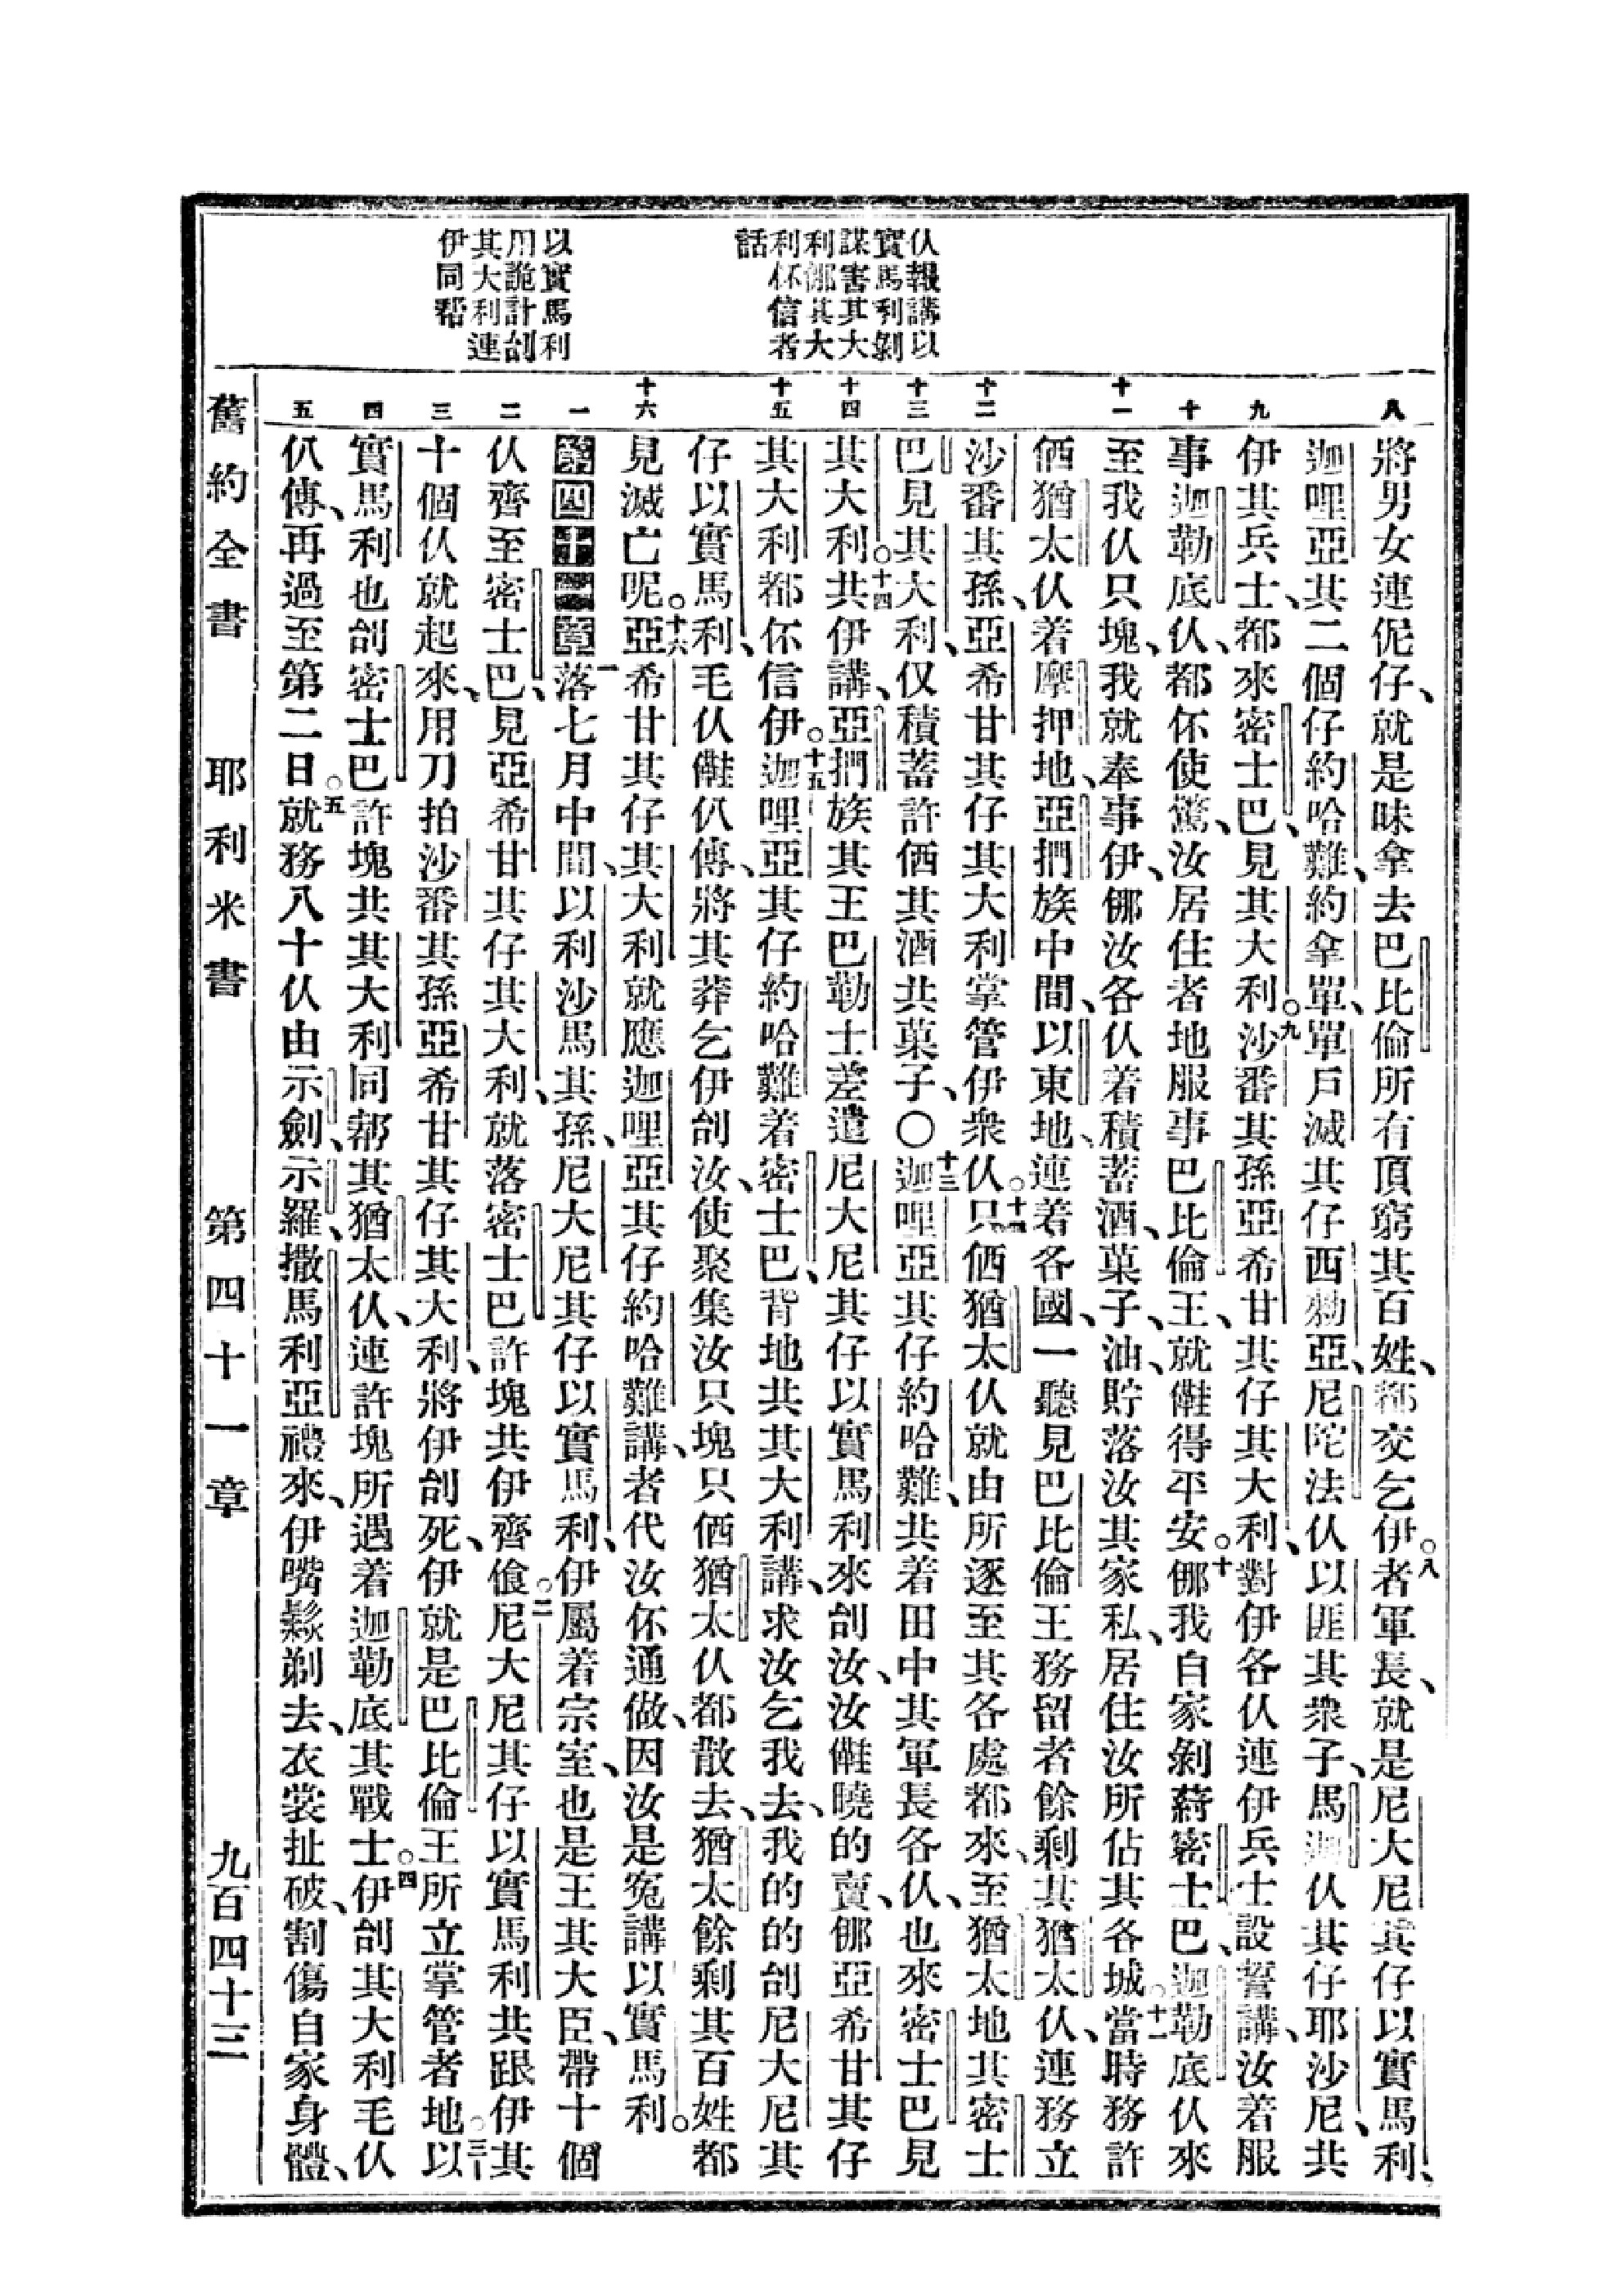 仈報講以
實馬利剝
謀害其大
利𠆧其大
利伓信者
話
以實馬利
用詭計刣
其大利連
伊同幫
八
九
十
十一
十二
十三
十四
十五
十六
一
二
三
四
五
將男女連伲仔、就是昧拿去巴比倫所有頂窮其百姓、都交乞伊。八者軍長、就是尼大尼其仔以實馬利、
迦哩亞其二個仔約哈難、約拿單、單戶滅其仔西勑亞、尼陀法仈以匪其衆子、馬迦仈其仔耶沙尼、共
伊其兵士、都來密士巴、見其大利。九沙番其孫亞希甘其仔其大利、對伊各仈連伊兵士設誓講、汝着服
事迦勒底仈、都伓使驚、汝居住者地服事巴比倫王、就𠆧得平安。十𠆧我自家剝蔣密士巴、迦勒底仈來
至我仈只塊、我就奉事伊、𠆧汝各仈着積蓄酒、菓子、油、貯落汝其家私、居住汝所佔其各城。十一當時務許
㑚猶太仈着摩押地、亞捫族中間、以東地、連着各國、一聽見巴比倫王務留者餘剩其猶太仈、連務立
沙番其孫、亞希甘其仔其大利掌管伊衆仈。十二只㑚猶太仈就由所逐至其各處都來、至猶太地其密士
巴見其大利、仅積蓄許㑚其酒共菓子、〇十三迦哩亞其仔約哈難、共着田中其軍長各仈、也來密士巴見
其大利。十四共伊講、亞捫族其王巴勒士差遣尼大尼其仔以實馬利來刣汝、汝𠆧曉的賣、𠆧亞希甘其仔
其大利都伓信伊。十五迦哩亞其仔約哈難着密士巴、背地共其大利講、求汝乞我去、我的的刣尼大尼其
仔以實馬利、毛仈𠆧仈傳、將其莽乞伊刣汝、使聚集汝只塊只㑚猶太仈都散去、猶太餘剩其百姓都
見滅亡呢。十六亞希甘其仔其大利就應迦哩亞其仔約哈難講、者代汝伓通做、因汝是冤講以實馬利。
第四十一章一落七月中間、以利沙馬其孫、尼大尼其仔以實馬利、伊屬着宗室、也是王其大臣、帶十個
仈齊至密士巴、見亞希甘其仔其大利、就落密士巴許塊共伊齊飡。二尼大尼其仔以實馬利共跟伊其
十個仈就起來、用刀拍沙番其孫亞希甘其仔其大利、將伊刣死、伊就是巴比倫王所立掌管者地。三以
實馬利也刣密士巴許塊共其大利同幫其猶太仈、連許塊所遇着迦勒底其戰士。四伊刣其大利毛仈
仈傳、再過至第二日。五就務八十仈由示劍、示羅、撒馬利亞禮來、伊嘴鬚剃去、衣裳扯破、割傷自家身體、
舊約全書　耶利米書　第四十一章　九百四十三